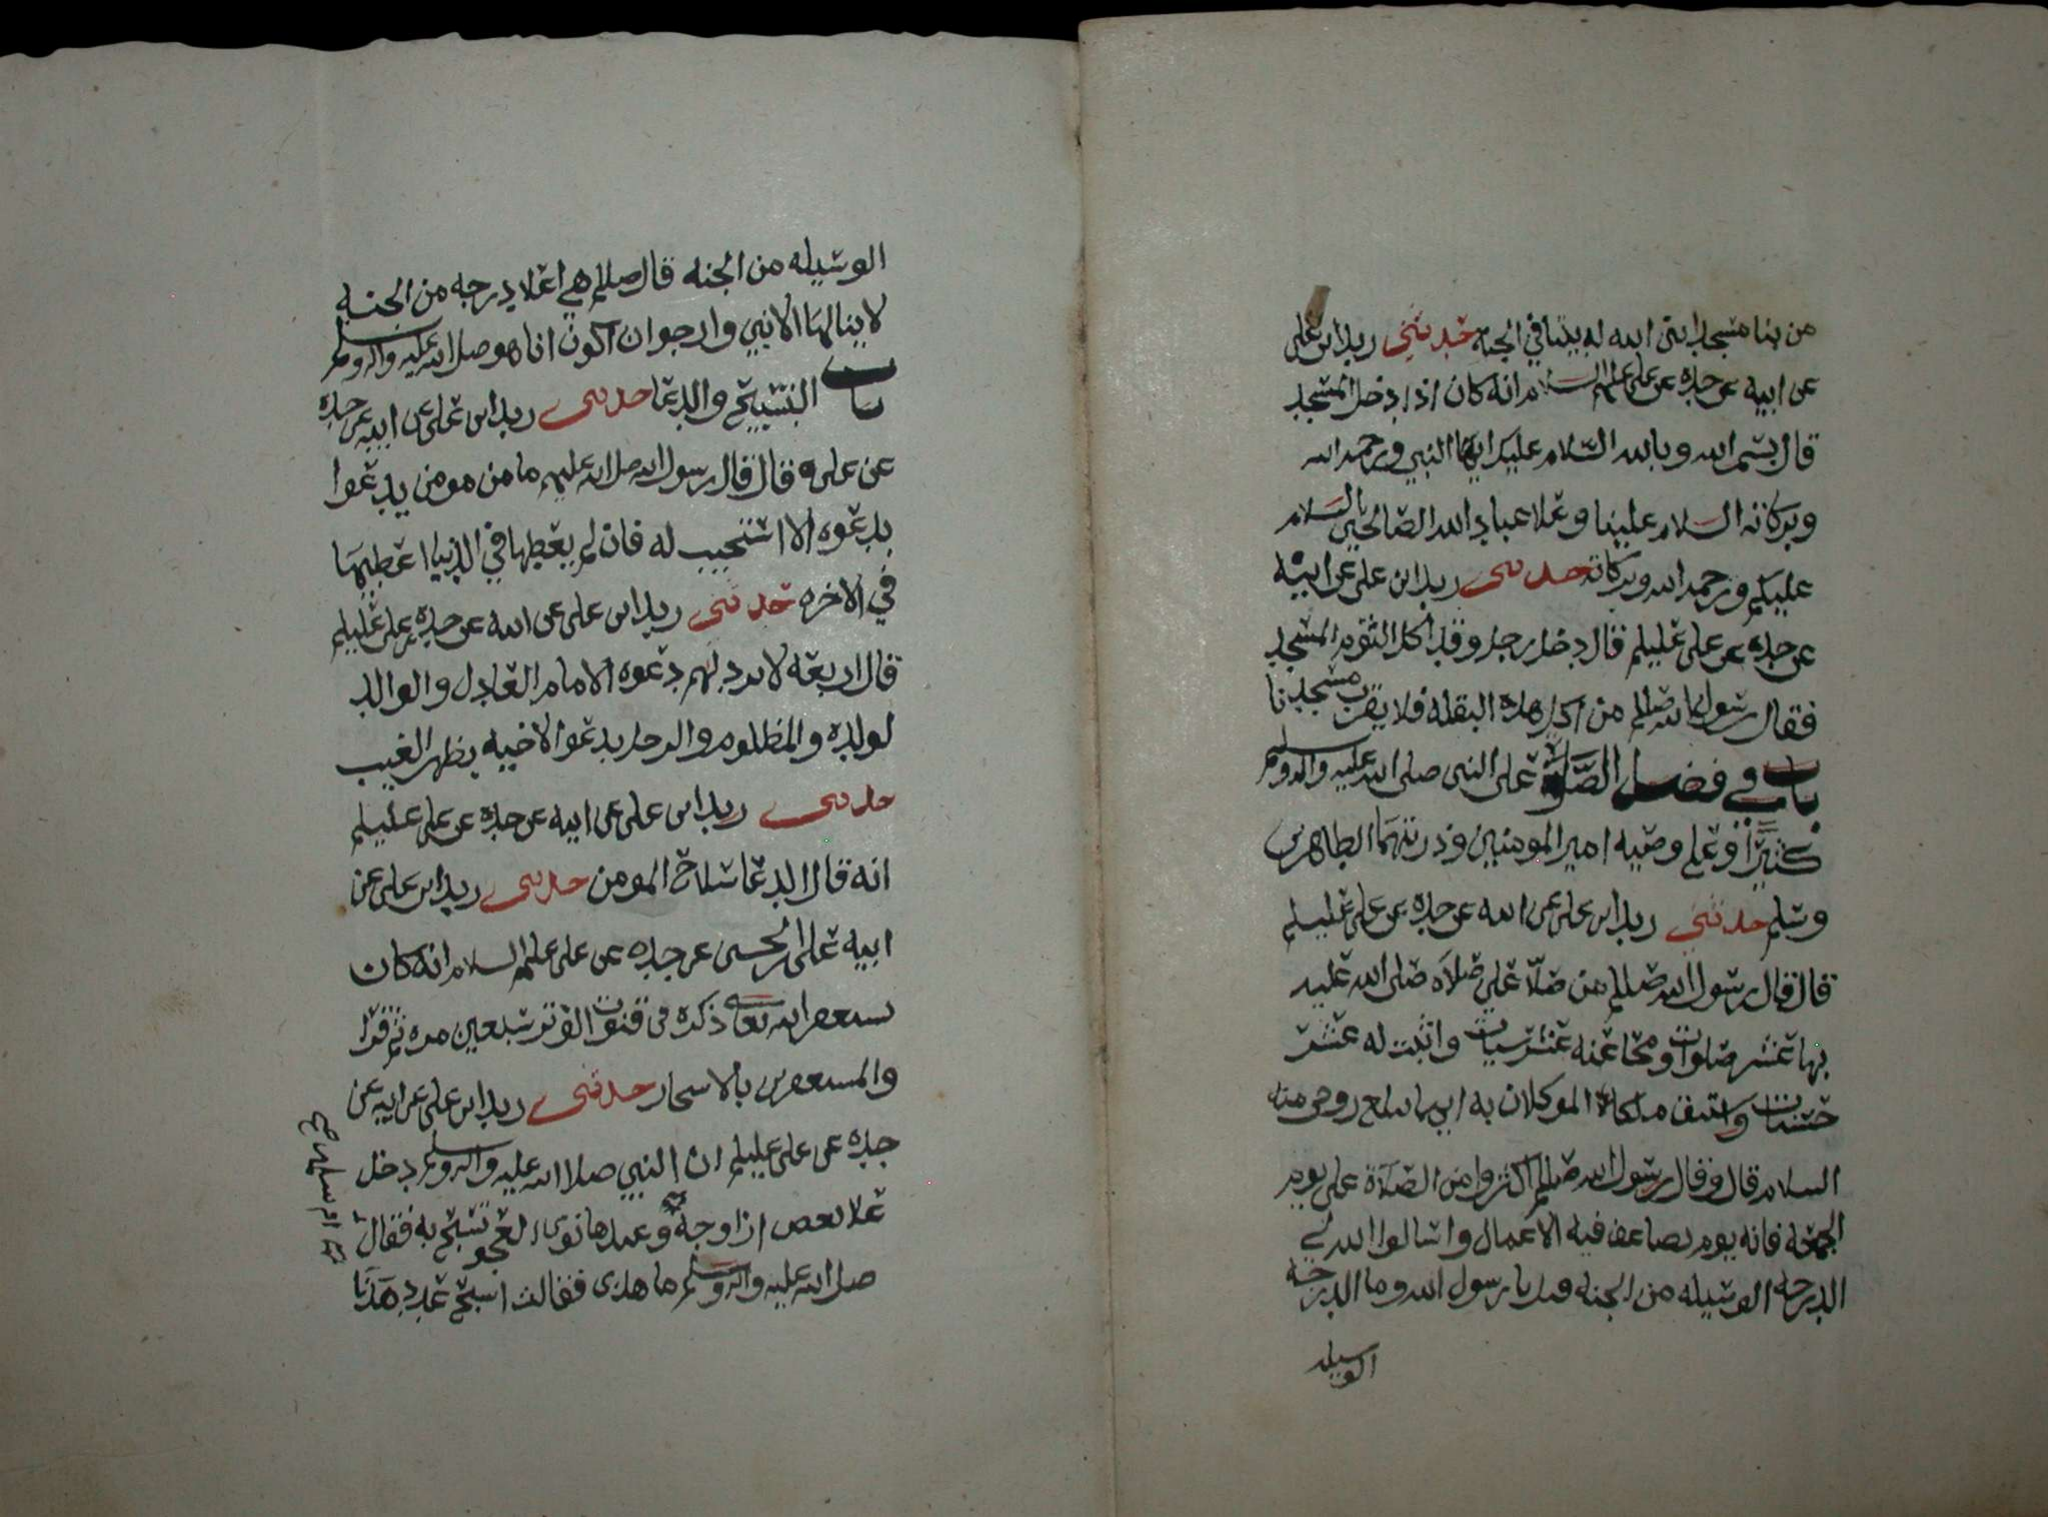 من بنا مسجدا بنى الله له بيتا في الجنة حدثني زيد ابن علي
عن ابيه عن جده عن علي عليهم السلام انه كان اذا دخل المسجد
قال بسم الله وبالله السلام عليك ايها النبي ورحمة الله
وبركاته السلام علينا وعلا عباد الله الصالحين السلام
عليكم ورحمة الله وبركاته حدثني زيد ابن علي عن ابيه
عن جده عن علي عليلم قال دخل رجل وقد اكل الثوم المسجد
فقال رسول الله صللم من اكل هذه البقله فلا يقرب مسجدنا
باب في فضل الصلوة على النبي صلى الله عليه واله وسلم
كثيرا وعلى وصيه امير المومنين وذريتهما الطاهرين
وسلم حدثني زيد ابن علي عن ابيه عن جده عن علي عليلم
قال قال رسول الله صللم من صلا علي صلاه صلى الله عليه
بها عشر صلوات ومحا عنه عشر سيات واثبت له عشر
حسنات واستبق ملكاه الموكلان به ايهما يبلغ روحي منه
السلام قال وقال رسول الله صللم اكثروا من الصلاة علي يوم
الجمعه فانه يوم يضاعف فيه الاعمال واسالوا الله لي
الدرجه الوسيله من الجنه قيل يا رسول الله وما الدرجه
الوسيله
الوسيله من الجنه قال صللم هي اعلا درجه من الجنه
لا ينالها الا نبي وارجوا ان اكون انا هو صلى الله عليه واله وسلم
باب التسبيح والدعا حدثني زيد ابن علي عن ابيه عن جده
عن علي قال قال رسول الله صلى الله عليه ما من مومن يدعوا
بدعوه الا استجيب له فان لم يعطها في الدنيا اعطيها
في الاخره حدثني زيد ابن علي عن ابيه عن جده عن علي عليلم
قال اربعه لا ترد لهم دعوه الامام العادل والوالد
لولده والمظلوم والرجل يدعوا لاخيه بظهر الغيب
حدثني زيد ابن علي عن ابيه عن جده عن علي عليلم
انه قال الدعا سلاح المومن حدثني زيد ابن علي عن
ابيه علي ابن الحسين عن جده عن علي عليهم السلام انه كان
يستغفر الله تعالى ذكره في قنوت الوتر سبعين مره ثم قرا
والمستغفرين بالاسحار حدثني زيد ابن علي عن ابيه عن
جده عن علي عليلم ان النبي صلا الله عليه واله وسلم دخل
علا بعض ازواجه وعندها نوى العجو تسبح به فقال
صلى الله عليه واله وسلم ما هذى فقالت اسبح عدد هذا